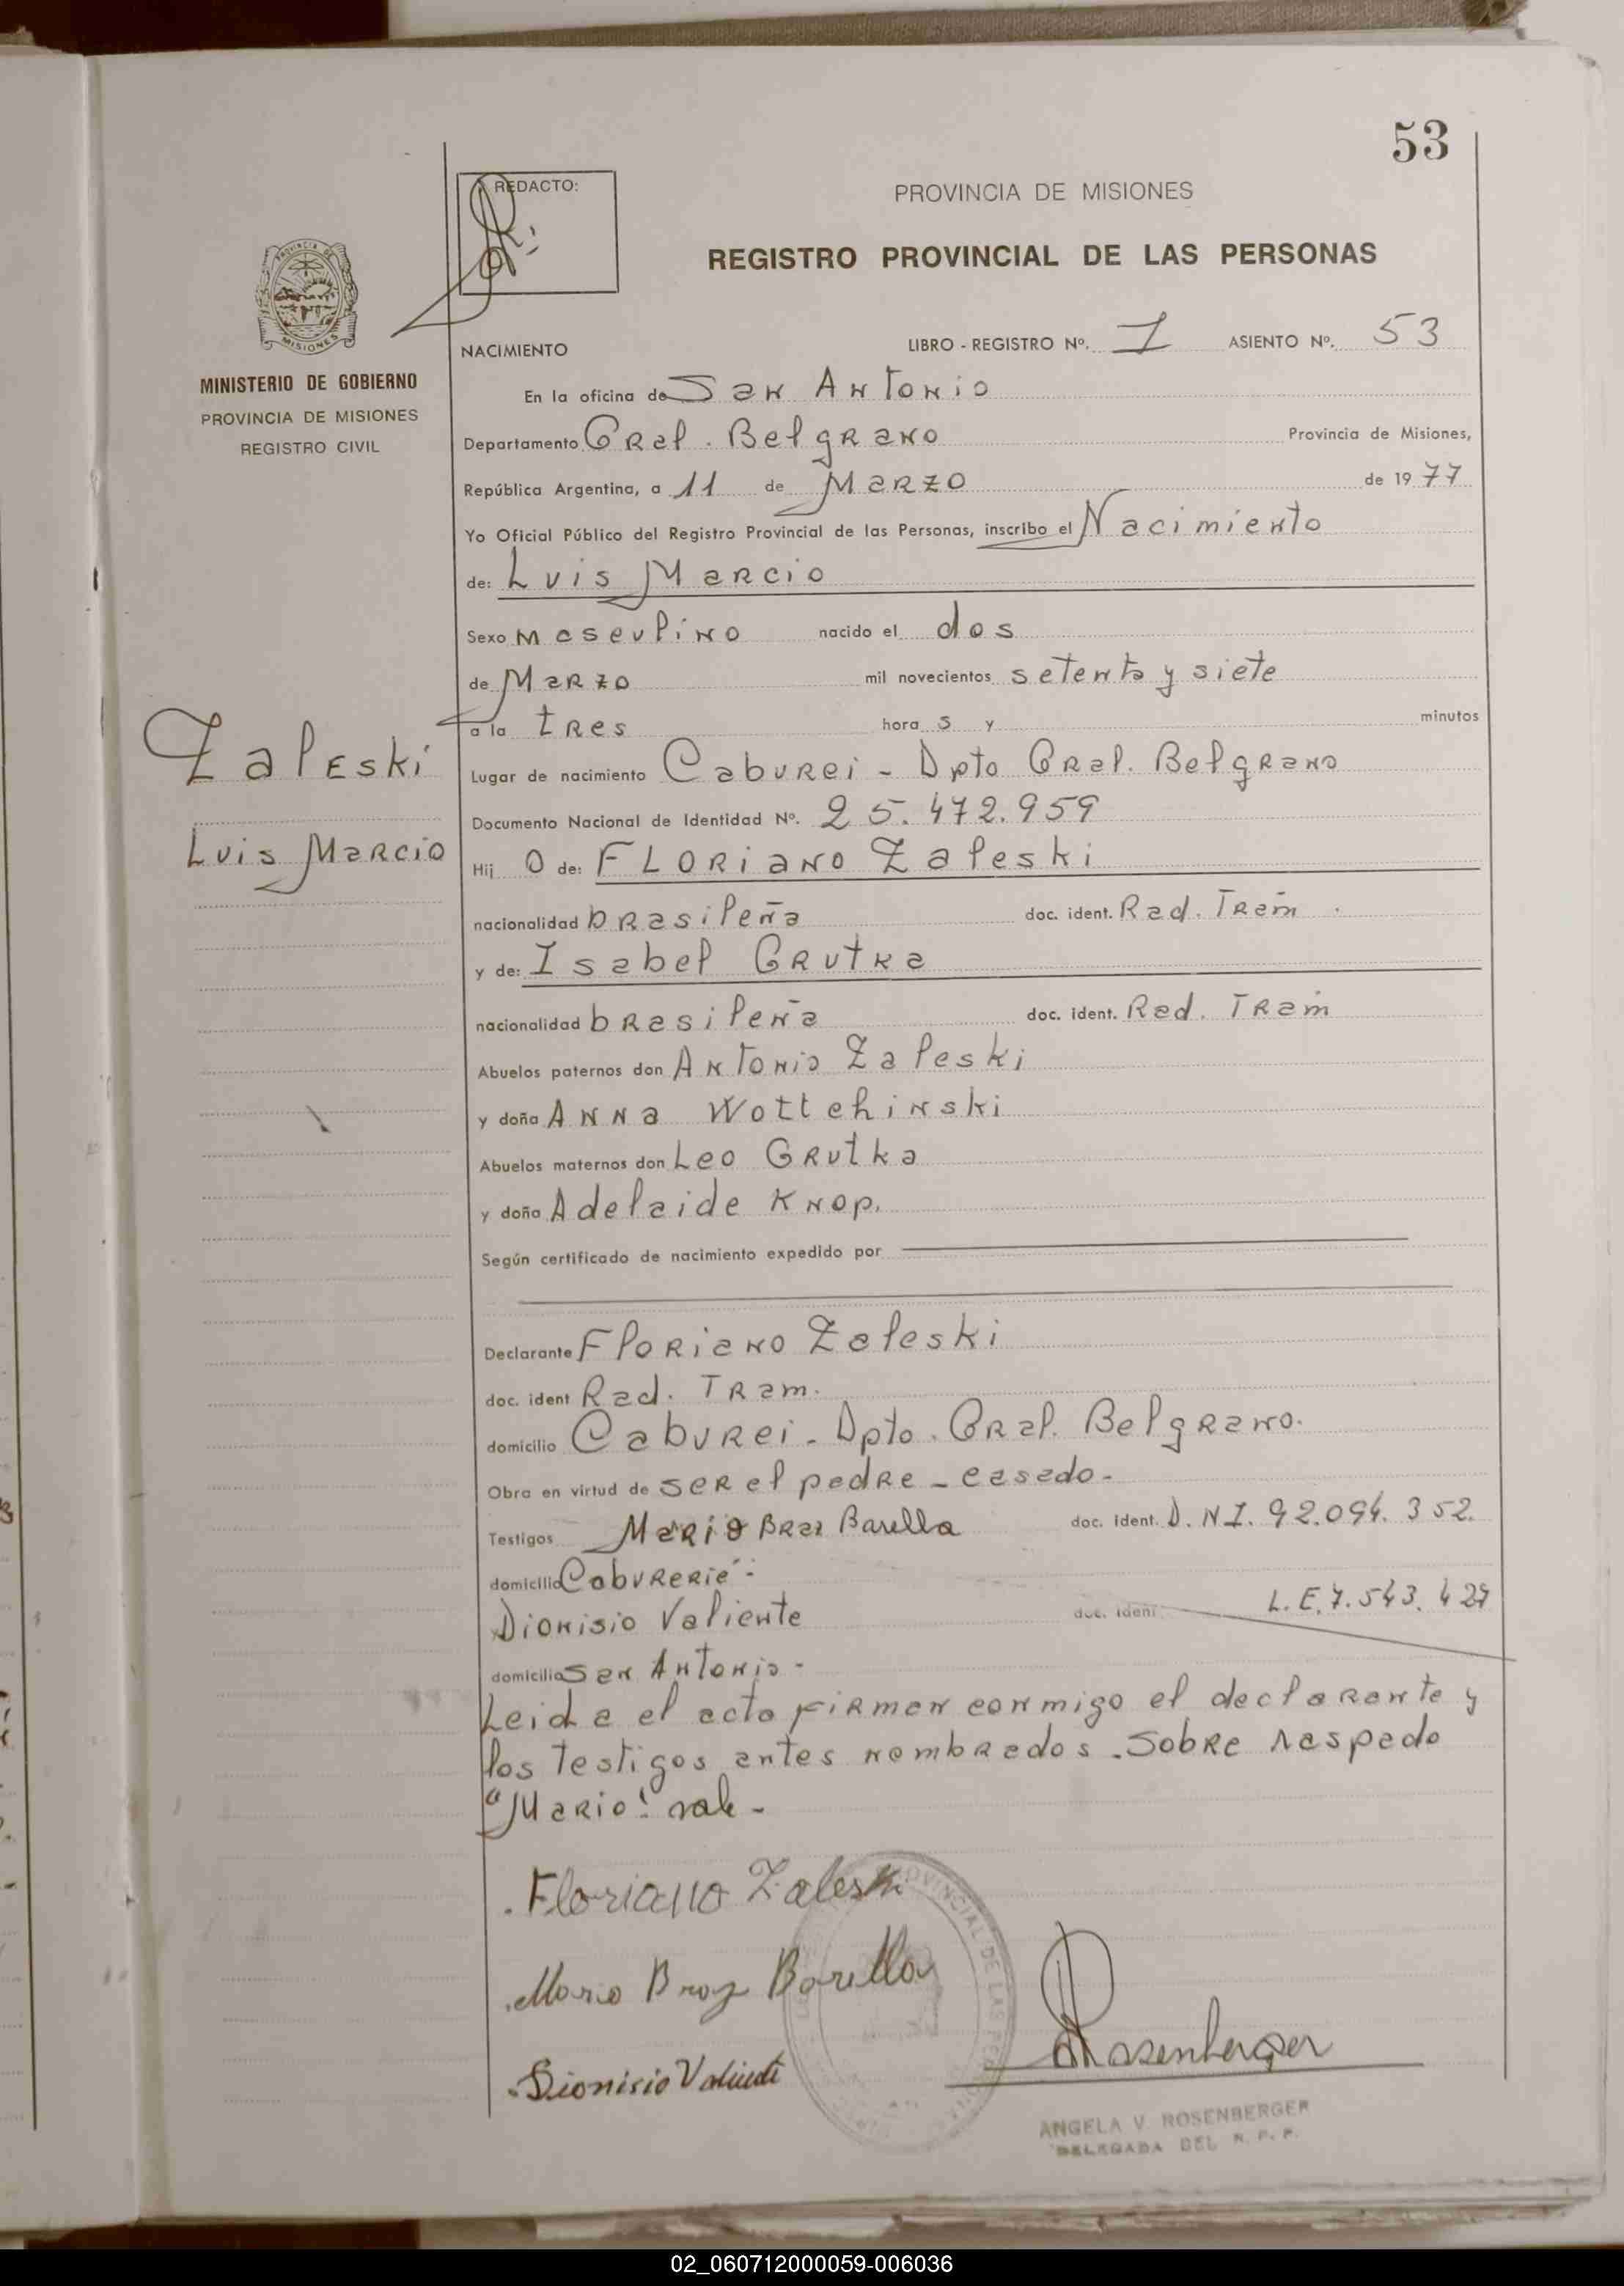 53
REDACTO:
PROVINCIA DE MISIONES
REGISTRO PROVINCIAL DE LAS PERSONAS
MISIONES
MINISTERIO DE GOBIERNO
PROVINCIA DE MISIONES
REGISTRO CIVIL
NACIMIENTO LIBRO - REGISTRO Nº. 1 ASIENTO Nº. 53
En la oficina de San Antonio
Departamento Gral. Belgrano Provincia de Misiones,
República Argentina, a 11 de Marzo de 1977
Yo Oficial Público del Registro Provincial de las Personas, inscribo el Nacimiento
de: Luis Marcio
Sexo masculino nacido el dos
de Marzo mil novecientos setenta y siete
a la tres hora s y minutos
Zaleski
Luis Marcio
Lugar de nacimiento Caburei - Dpto Gral. Belgrano
Documento Nacional de Identidad Nº. 25.472.959
Hij o de: Floriano Zaleski
nacionalidad brasileña doc. ident. Rad. Tram.
y de: Isabel Grutka
nacionalidad brasileña doc. ident. Rad. Tram
Abuelos paternos don Antonio Zaleski
y doña Anna Wottchinski
Abuelos maternos don Leo Grutka
y doña Adelaide Knop.
Según certificado de nacimiento expedido por
Declarante Floriano Zaleski
doc. ident Rad. Tram.
domicilio Caburei - Dpto. Gral. Belgrano.
Obra en virtud de ser el padre - casado -
Testigos Mario Braz Barella doc. ident. D.N.I. 92.094.352.
domicilio Cabureríe -
Dionisio Valiente doc. ident. L.E. 7.543.427
domicilio San Antonio -
Leida el acta firman conmigo el declarante y
los testigos antes nombrados. Sobre raspado
"Mario" vale -
Floriano Zaleski
Mario Braz Barella
Dionisio Valiente
Rosenberger
PROVINCIAL DE LAS
ANGELA V. ROSENBERGER
DELEGADA DEL R. P. P.
02_060712000059-006036